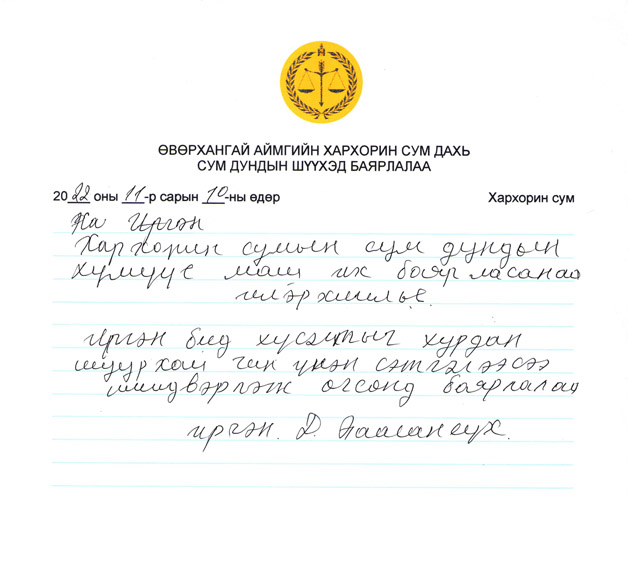 ӨВӨРХАНГАЙ АЙМГИЙН ХАРХОРИН СУМ ДАХЬ
СУМ ДУНДЫН ШҮҮХЭД БАЯРЛАЛАА
2022 оны 11-р сарын 10-ны өдөр Хархорин сум
Иргэн
Хархорин сумын сум дундын
хүмүүс маш их баярласанаа
илэрхийлье.
Иргэн бид хүсэлтийг хурдан
шуурхай үнэн сэтгэлээсээ
шийдвэрлэж өгсөнд баярлалаа
иргэн. Д.